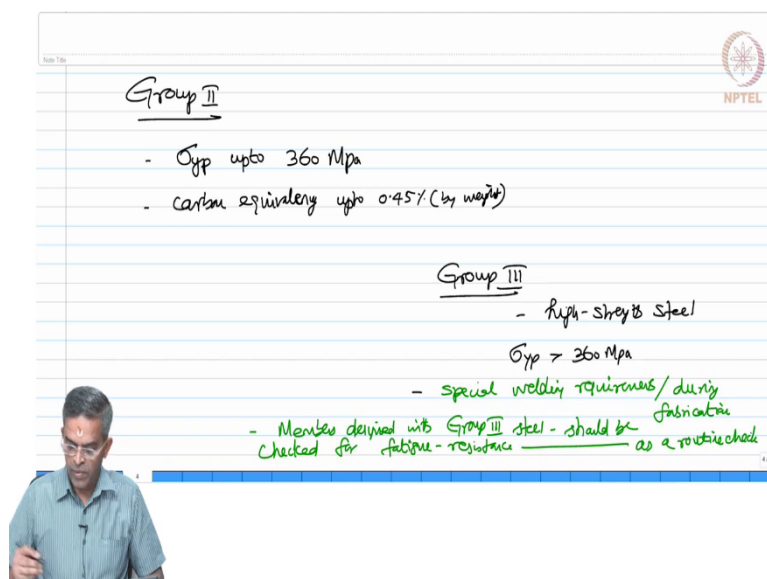 Note Title
NPTEL
Group II
- σyp upto 360 Mpa
- carbon equivalency upto 0.45% (by weight)
Group III
- high-strength steel
σyp > 360 Mpa
- special welding requirements / during
fabrication
- Members designed with Group III steel - should be
checked for fatigue-resistance ——— as a routine check